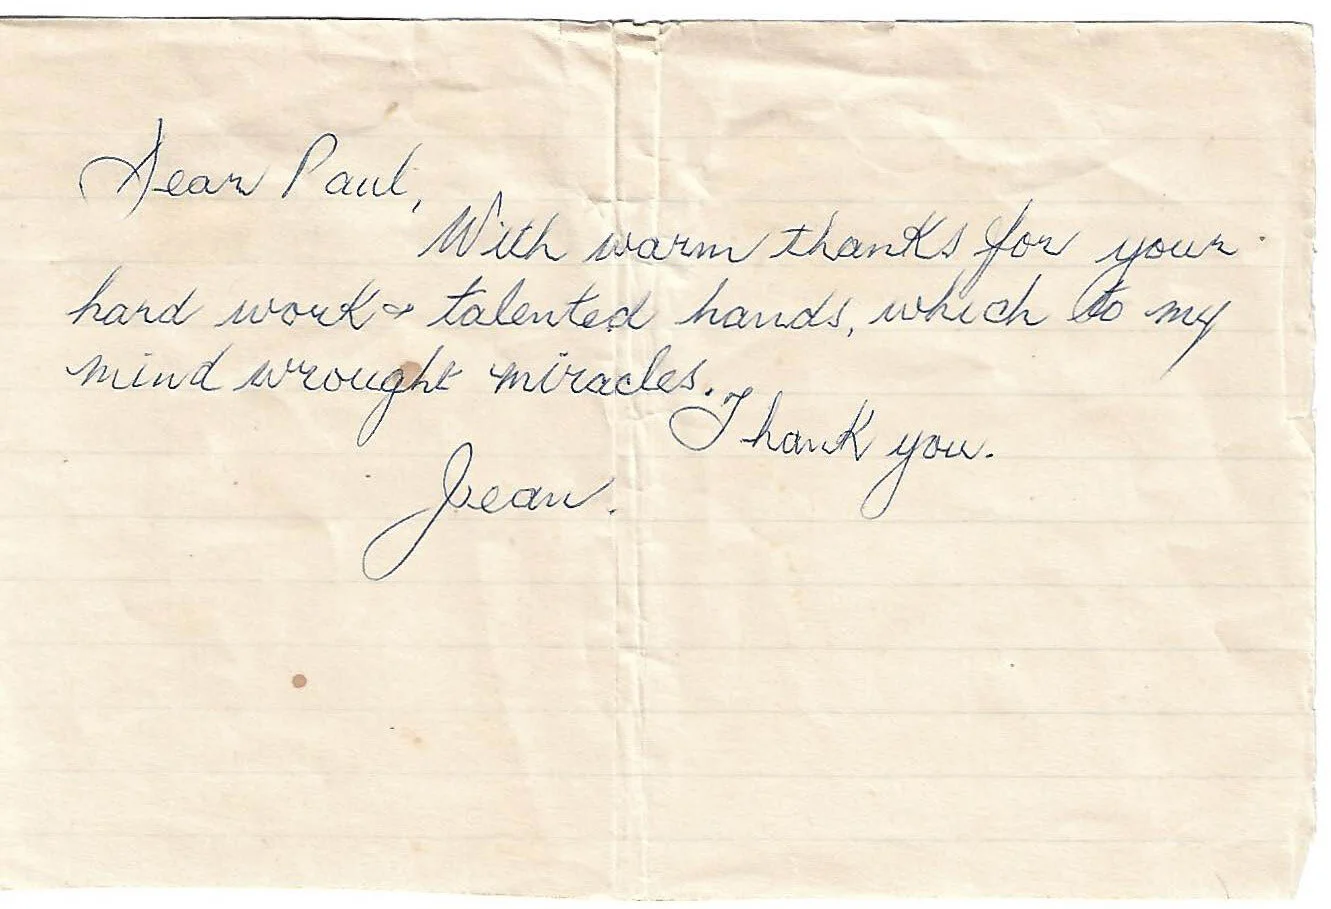 Dear Paul,
With warm thanks for your
hard work & talented hands, which to my
mind wrought miracles.
Thank you.
Jean.